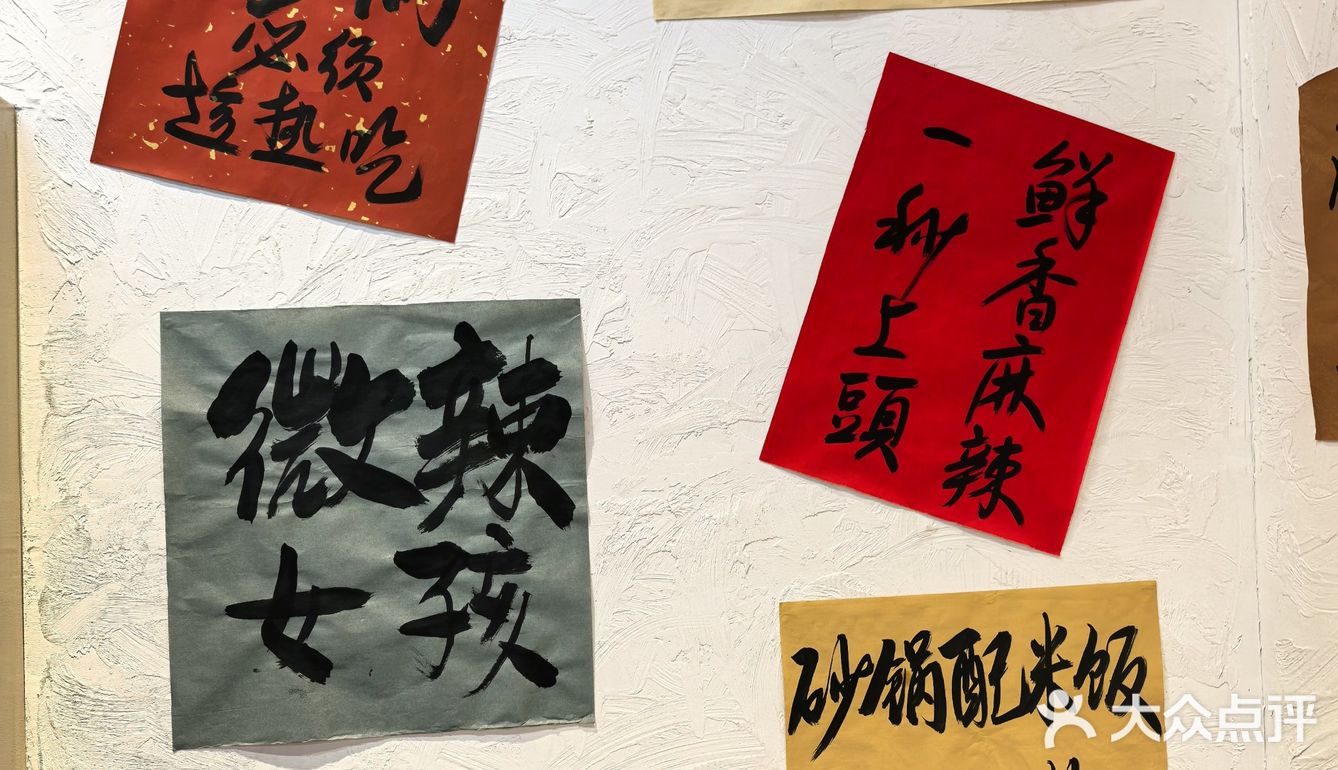 必须
趁热吃
鲜香麻辣
一秒上頭
微辣
女孩
砂锅配米饭
大众点评